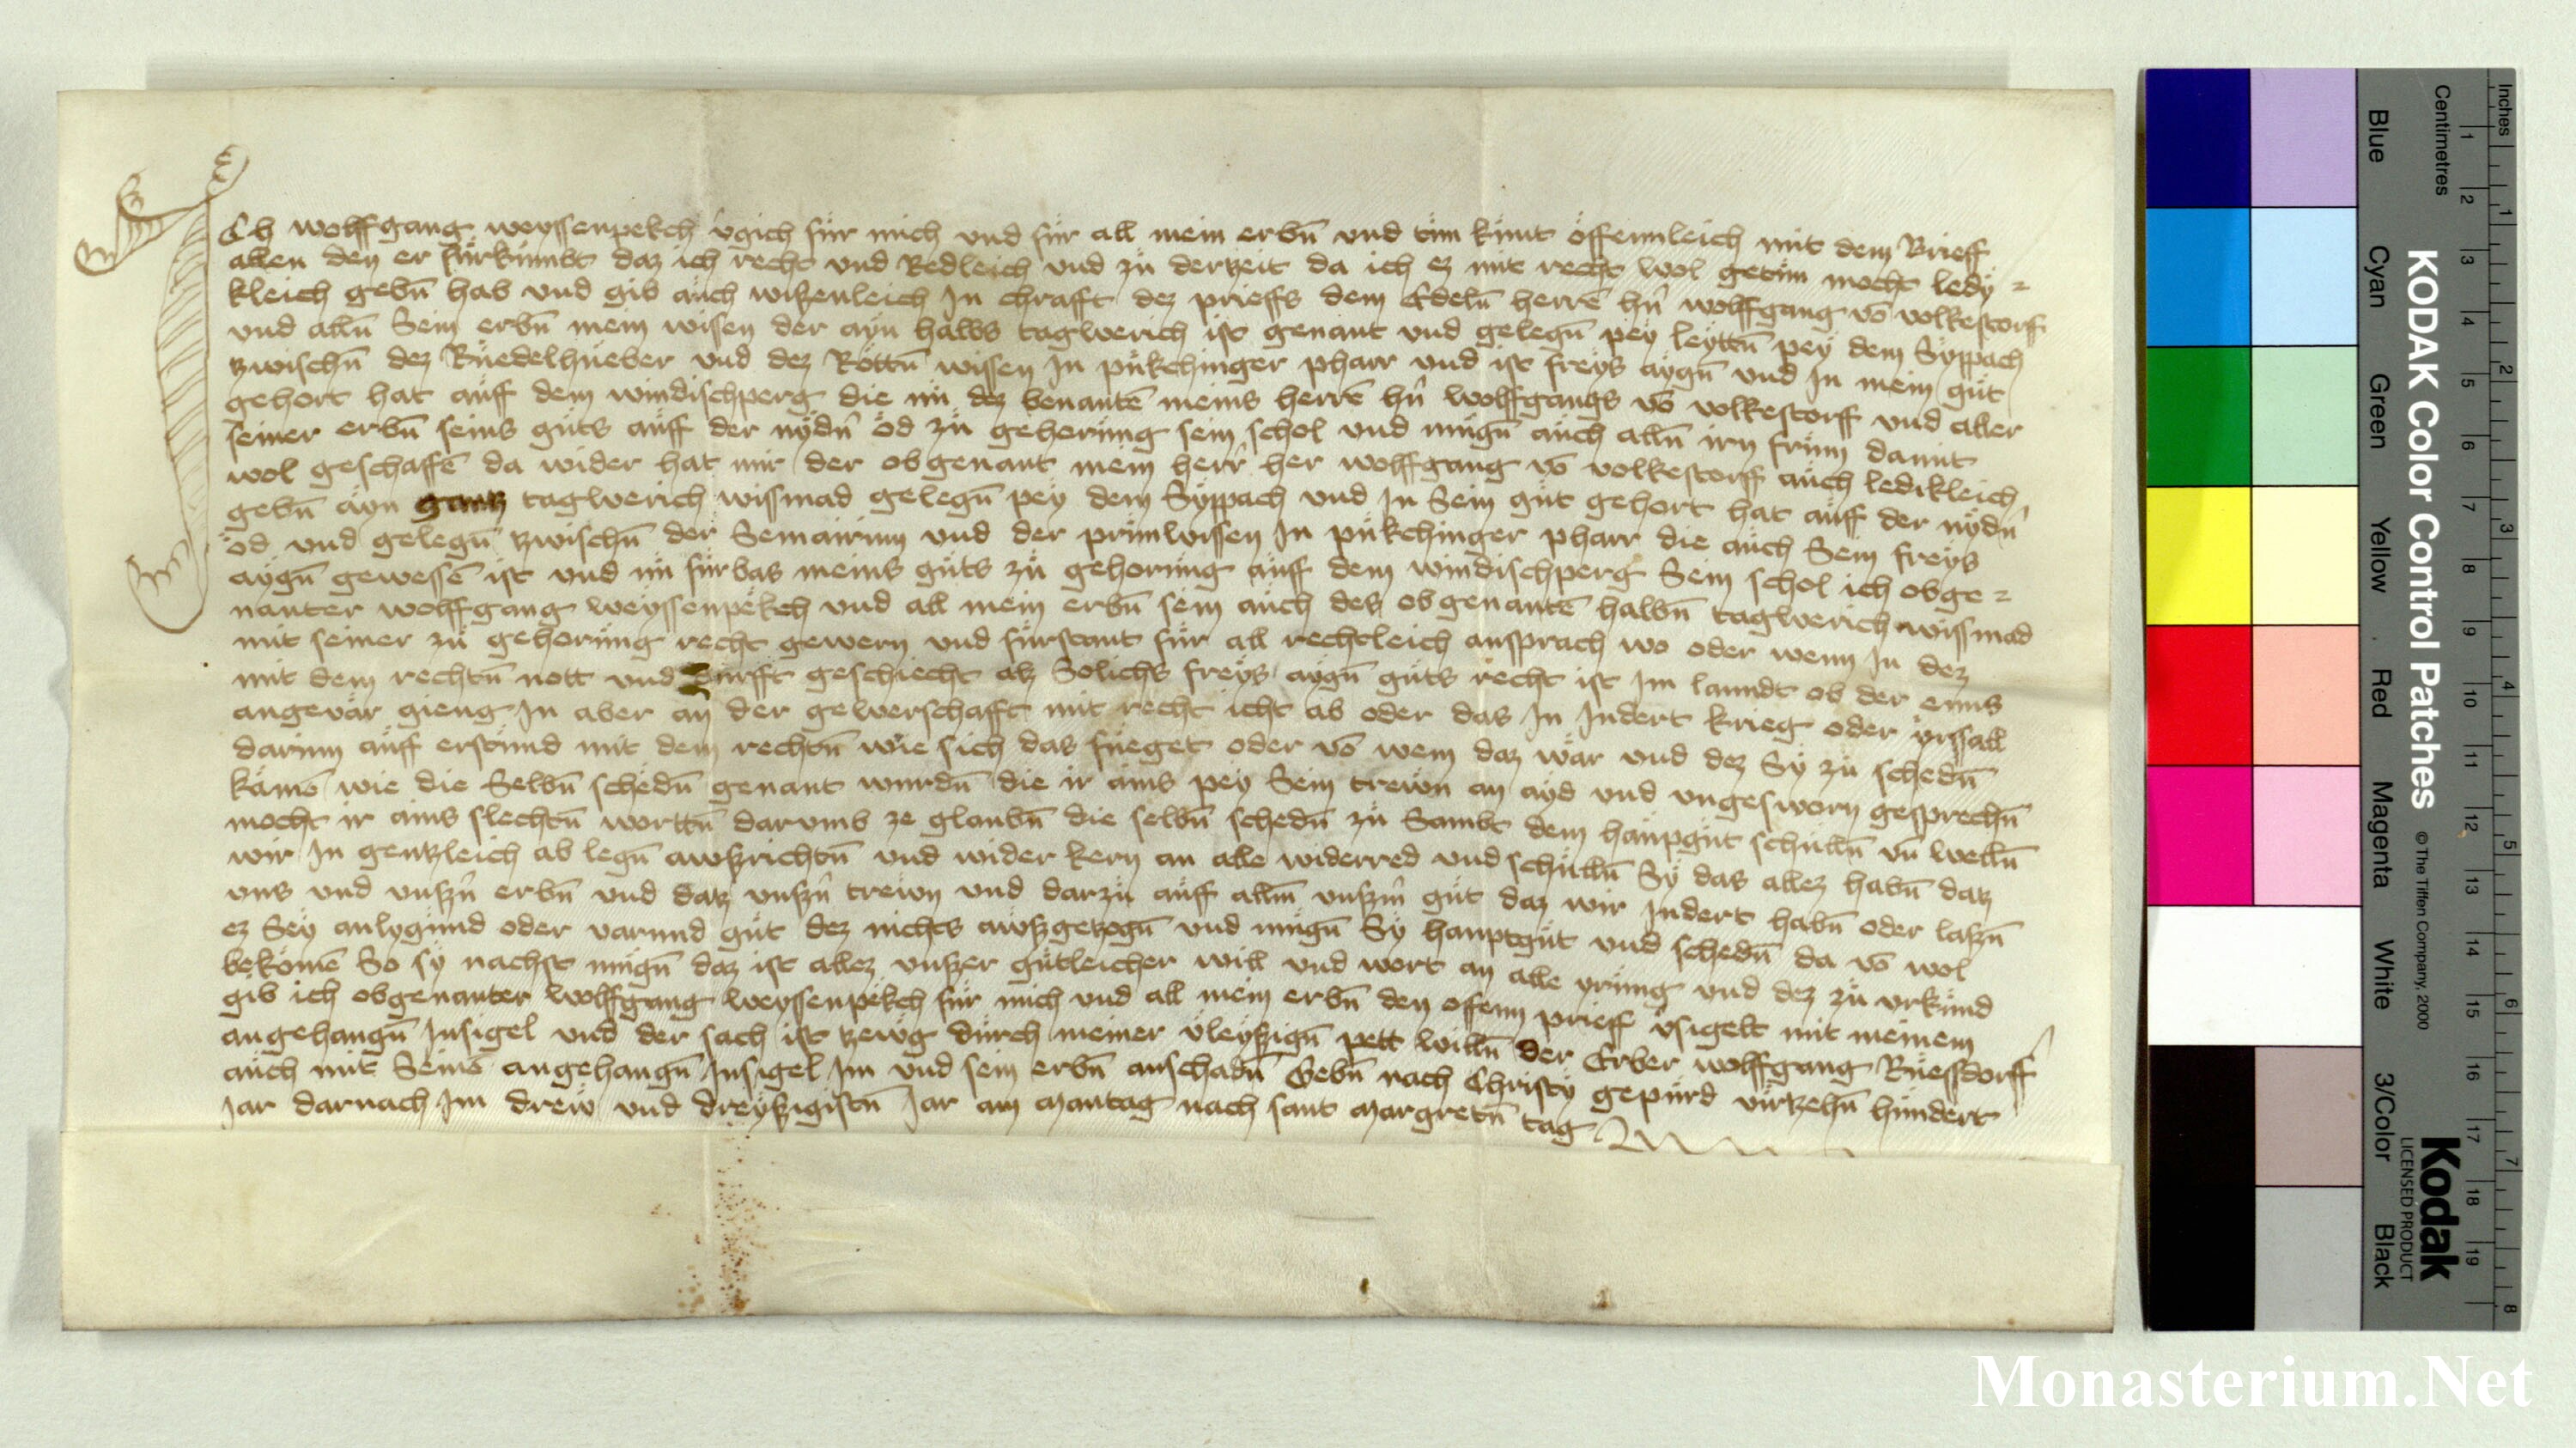 Ich wolffgang weyssenpekch v̓gich für mich vnd für all mein erbn̄ vnd tün künt offennleich mit dem Brieff
allen den er fürkümbt daz ich recht vnd Redleich vnd zü der zeit da ich ez mit recht wol getün mocht ledÿ =
kleich gebn̄ hab vnd gib aüch wiʒenleich In chrafft dez prieffs dem Edeln̄ herrē hn̓ wolffgang vō volkestorff
vnd alln̄ Sein erbn̄ mein wisen der aÿn halbs taglwerich ist genant vnd gelegn̄ peÿ leÿttn̄ peÿ dem Sÿppach
zwischn̄ dez Rüedelhueber vnd dez Röttn̄ wissen In pükchinger pharr vnd ist freÿs aÿgn̄ vnd In mein güt
gehort hat aüff dem windischperg die nü dez benantē meins herrē hn̓ wolffgangs vō volkestorff vnd aller
seiner erbn̄ seins güts aüff der nÿdn̓ öd zü gehorüng sein schol vnd mügn̄ aüch alln̄ irn frümi damit
wol geschaffē da wider hat mir der obgenant mein herr her wolffgang vō volkestorff aüch ledikleich
gebn̄ aÿn gantz taglwerich wissmad gelegn̄ peÿ dem Sÿppach vnd In Sein güt gehort hat aüff der nÿdn̓
öd vnd gelegn̄ zwischn̄ der Semairinn vnd der prünlwissen In pükchinger pharr die aüch Sein freÿs
aÿgn̄ gewessē ist vnd nü fürbas meins güts zü gehorüng aüff dem windischperg Sein schol ich obge =
nanter wolffgang weyssenpekch vnd all mein erbn̄ sein aüch des obgenantē halbn̄ taglwerich wissmad
mit seiner zü gehorüng recht gewern vnd fürstant für all rechtleich ansprach wo oder wenn In dez
mit dem rechtn̄ nott vnd dürfft geschiecht alz Solichs freÿs aÿgn̄ güts recht ist Im lanndt ob der enns
angevär gieng In aber an der gewerschafft mit recht icht ab oder das In Indert krieg oder ÿrssall
darinn aüff erstünd mit dem rechtn̄ wie sich das füeget oder vō wem daz wär vnd dez Sÿ zü schedn̄
kämē wie die Selbn̄ schedn̄ genant wurdn̄ die ir ains peÿ Sein trewn an aÿd vnd vngesworn gesprechn̄
mocht ir ains slechtn̄ worttn̄ darumb ze glaubn̄ die selbn̄ schedn̄ zü Sambt dem haüpgüt schülln̄ vn̄ welln̄
wir In gentzleich ab legn̄ awʒrichtn̄ vnd wider kern an alle widerred vnd schülln̄ Sÿ das allez habn̄ datz
vns vnd vnsʒn̓ erbn̄ vnd datz vnsʒn̓ trewn vnd darzü aüff allm̄ vnsʒm̓ güt daz wir Indert habn̄ oder lasʒn̄
ez Seÿ anlygünd oder varund güt dez nichts awʒgetzogn̄ vnd mügn̄ Sÿ hauptgüt vnd schedn̄ da vō wol
bekömē So sÿ nachst mügn̄ daz ist allez vnsʒer gütleicher will vnd wort an alle yrüng vnd dez zü vrkünd
gib ich obgenanter wolffgang weyssenpekch für mich vnd all mein erbn̄ den offenn prieff v̓sigelt mit meinem
angehangn̄ Insigel vnd der sach ist zewg dürch meiner vleyʒign̄ pett willn̄ der Erber wolffgang Rüessdorff
aüch mit Seinē angehangn̄ Insigel Im vnd sein erbn̄ anschadn̄ Gebn̄ nach Christÿ gepürd virtzehn̄ hündert
Jar darnach Im drew vnd dreyʒigistn̄ Jar am Mantag nach sant Margretn̄ tag
Inches
1
2
3
4
5
6
7
8
Centimetres
1
2
3
4
5
6
7
8
9
10
11
12
13
14
15
16
17
18
19
KODAK Color Control Patches
© The Tiffen Company, 2000
Kodak
LICENSED PRODUCT
Blue
Cyan
Green
Yellow
Red
Magenta
White
3/Color
Black
Monasterium.Net